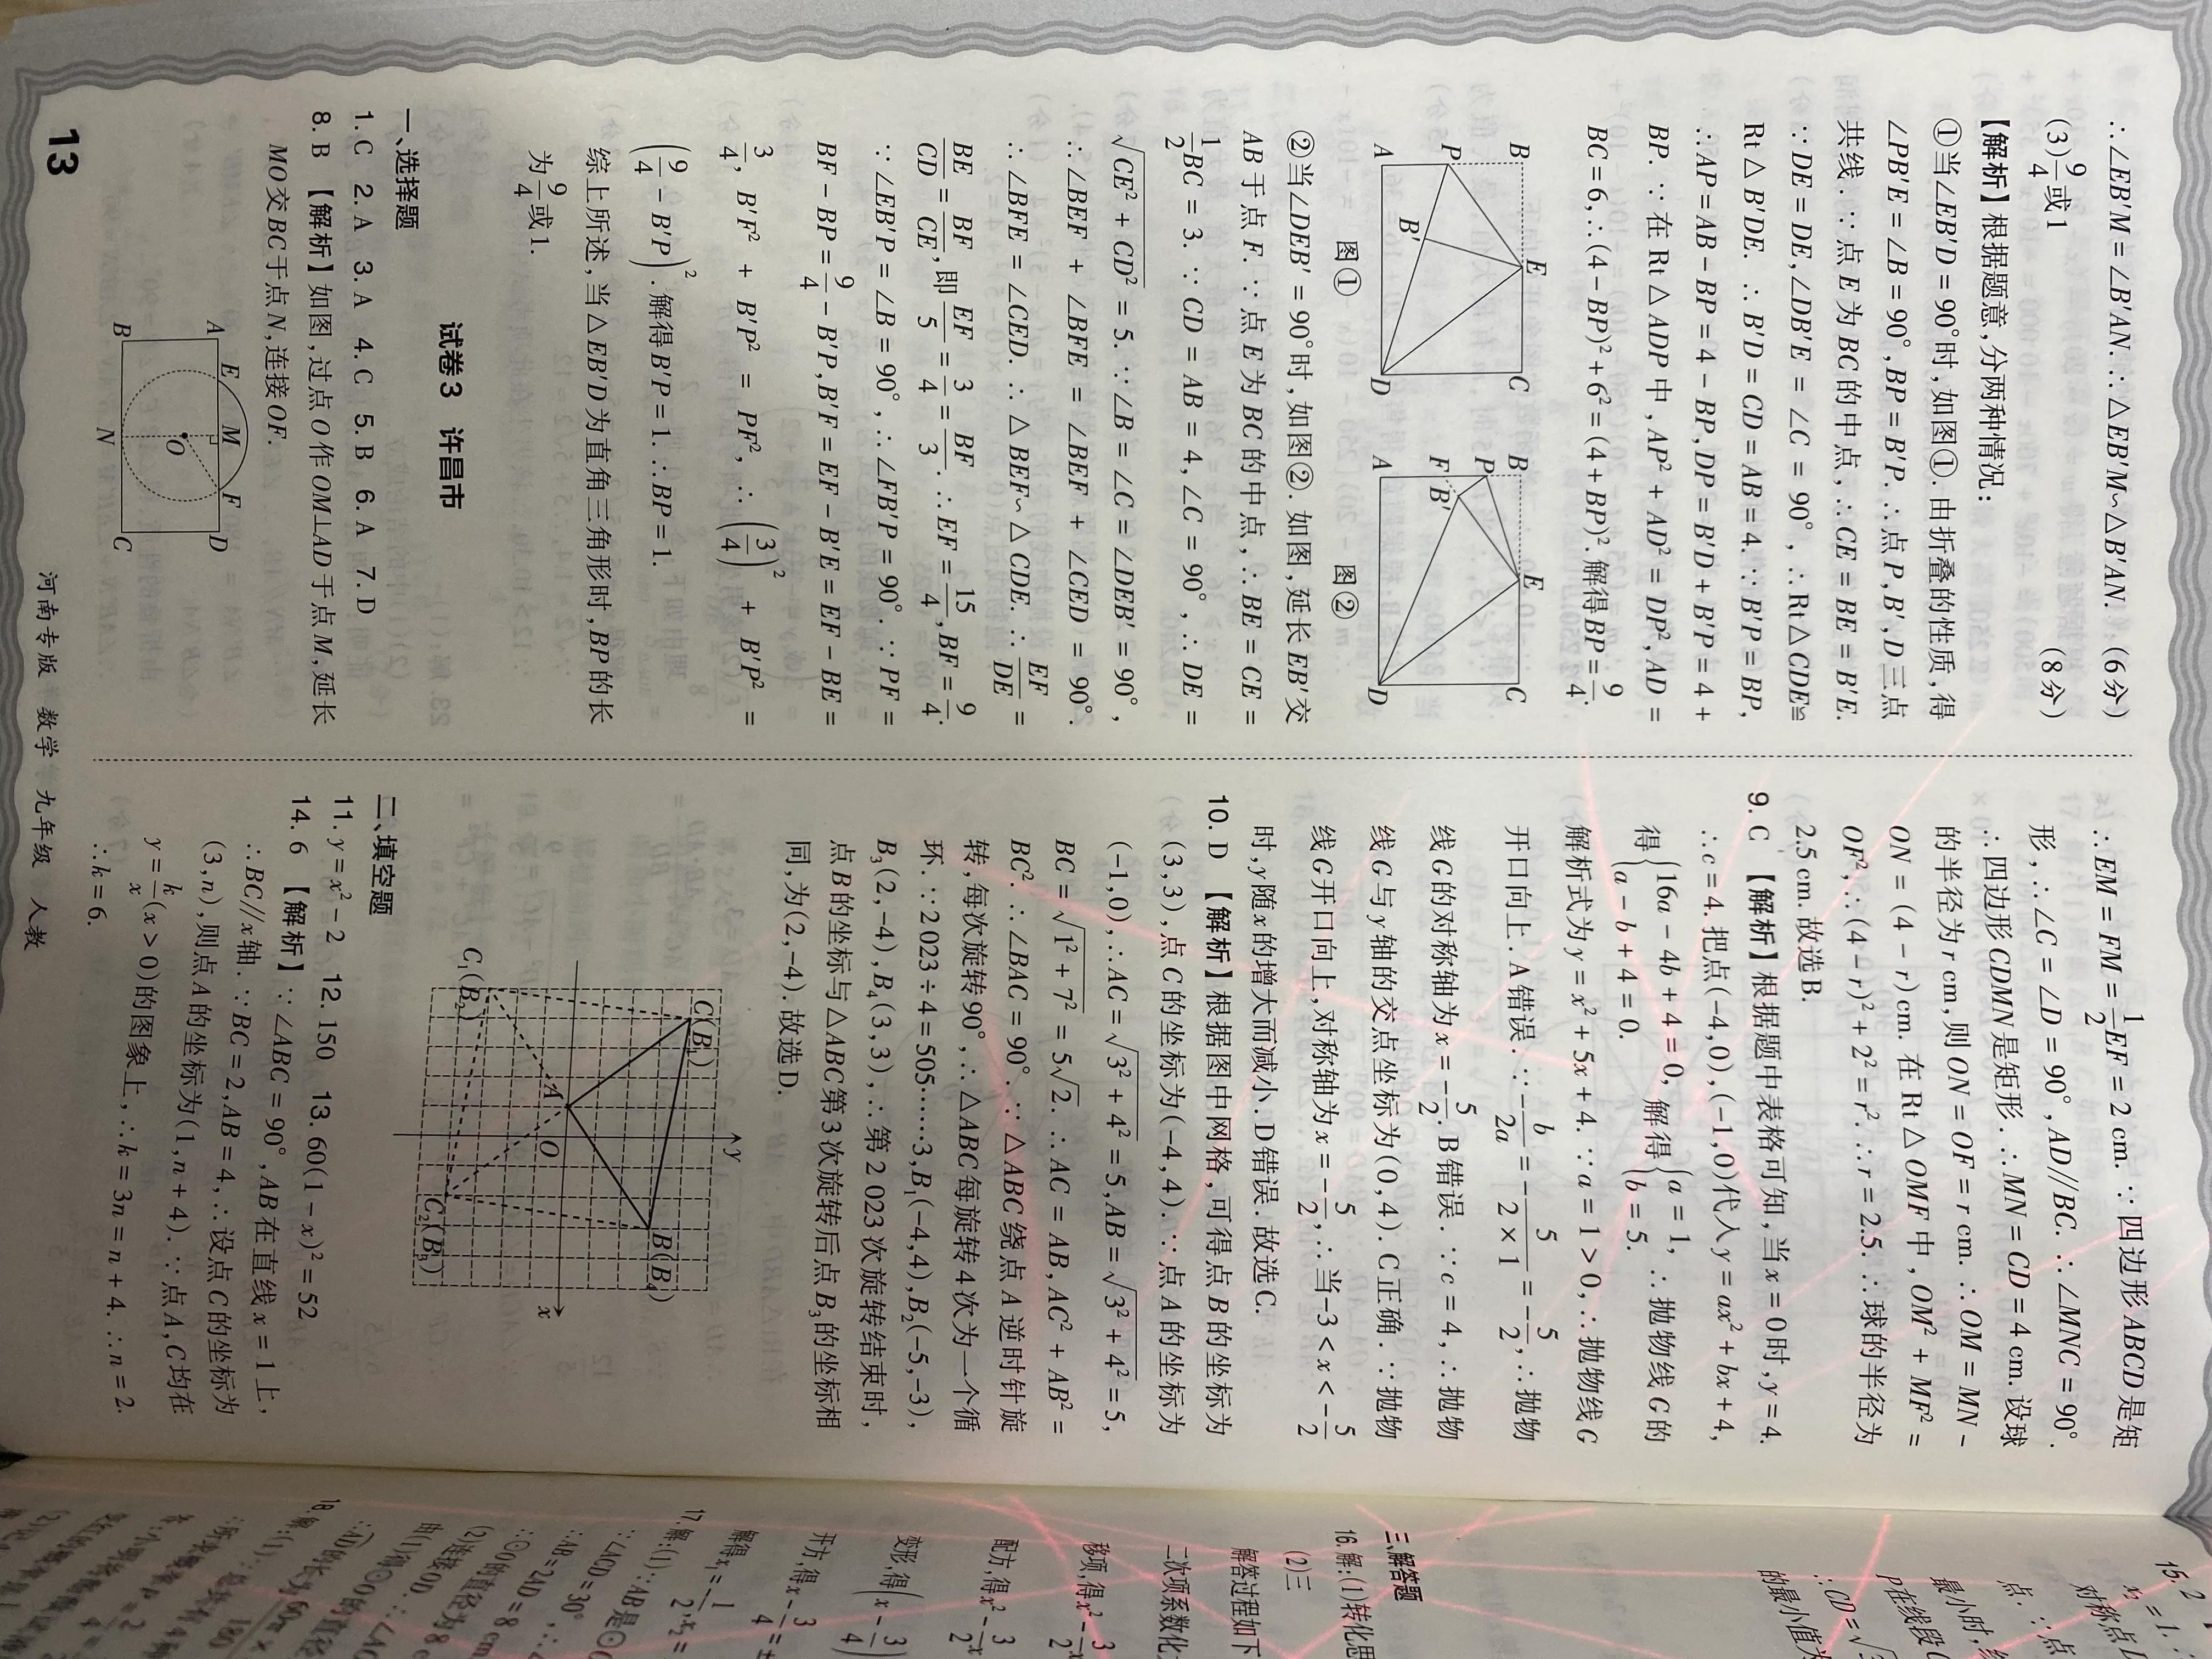 ∴∠EB′M=∠B′AN.∴△EB′M∽△B′AN. (6分)
(3)9/4或1 (8分)
【解析】根据题意,分两种情况:
①当∠EB′D=90°时,如图①.由折叠的性质,得
∠PB′E=∠B=90°,BP=B′P.∴点P,B′,D三点
共线.∵点E为BC的中点,∴CE=BE=B′E.
∵DE=DE,∠DB′E=∠C=90°,∴Rt△CDE≌
Rt△B′DE.∴B′D=CD=AB=4.∵B′P=BP,
∴AP=AB-BP=4-BP,DP=B′D+B′P=4+
BP.∵在Rt△ADP中,AP²+AD²=DP²,AD=
BC=6,∴(4-BP)²+6²=(4+BP)².解得BP=9/4.
B E C
P
B′
A D
图①
B E C
P
F B′
A D
图②
②当∠DEB′=90°时,如图②.如图,延长EB′交
AB于点F.∵点E为BC的中点,∴BE=CE=
1/2BC=3.∵CD=AB=4,∠C=90°,∴DE=
√(CE²+CD²)=5.∵∠B=∠C=∠DEB′=90°,
∴∠BEF+∠BFE=∠BEF+∠CED=90°.
∴∠BFE=∠CED.∴△BEF∽△CDE.∴EF/DE=
BE/CD=BF/CE,即EF/5=3/4=BF/3.∴EF=15/4,BF=9/4.
∵∠EB′P=∠B=90°,∴∠FB′P=90°.∵PF=
BF-BP=9/4-B′P,B′F=EF-B′E=EF-BE=
3/4,B′F²+B′P²=PF²,∴(3/4)²+B′P²=
(9/4-B′P)².解得B′P=1.∴BP=1.
综上所述,当△EB′D为直角三角形时,BP的长
为9/4或1.
试卷3 许昌市
一、选择题
1.C 2.A 3.A 4.C 5.B 6.A 7.D
8.B 【解析】如图,过点O作OM⊥AD于点M,延长
MO交BC于点N,连接OF.
A E M F D
O
B N C
∴EM=FM=1/2EF=2 cm.∵四边形ABCD是矩
形,∴∠C=∠D=90°,AD//BC.∴∠MNC=90°.
∴四边形CDMN是矩形.∴MN=CD=4 cm.设球
的半径为r cm,则ON=OF=r cm.∴OM=MN-
ON=(4-r)cm.在Rt△OMF中,OM²+MF²=
OF²,∴(4-r)²+2²=r².∴r=2.5.∴球的半径为
2.5 cm.故选B.
9.C 【解析】根据题中表格可知,当x=0时,y=4.
∴c=4.把点(-4,0),(-1,0)代入y=ax²+bx+4,
得{16a-4b+4=0, a-b+4=0. 解得{a=1, b=5. ∴抛物线G的
解析式为y=x²+5x+4.∵a=1>0,∴抛物线G
开口向上.A错误.∵-b/2a=-5/(2×1)=-5/2,∴抛物
线G的对称轴为x=-5/2.B错误.∵c=4,∴抛物
线G与y轴的交点坐标为(0,4).C正确.∵抛物
线G开口向上,对称轴为x=-5/2,∴当-3<x<-5/2
时,y随x的增大而减小.D错误.故选C.
10.D 【解析】根据图中网格,可得点B的坐标为
(3,3),点C的坐标为(-4,4).∵点A的坐标为
(-1,0),∴AC=√(3²+4²)=5,AB=√(3²+4²)=5,
BC=√(1²+7²)=5√2.∴AC=AB,AC²+AB²=
BC².∴∠BAC=90°.∵△ABC绕点A逆时针旋
转,每次旋转90°,∴△ABC每旋转4次为一个循
环.∵2 023÷4=505……3,B₁(-4,4),B₂(-5,-3),
B₃(2,-4),B₄(3,3),∴第2 023次旋转结束时,
点B的坐标与△ABC第3次旋转后点B₃的坐标相
同,为(2,-4).故选D.
y
C(B₁)
B(B₄)
A O x
C₁(B₂)
C₂(B₃)
二、填空题
11.y=x²-2 12.150 13.60(1-x)²=52
14.6 【解析】∵∠ABC=90°,AB在直线x=1上,
∴BC//x轴.∵BC=2,AB=4,∴设点C的坐标为
(3,n),则点A的坐标为(1,n+4).∵点A,C均在
y=k/x(x>0)的图象上,∴k=3n=n+4.∴n=2.
∴k=6.
13
河南专版 数学 九年级 人教
15.2
对称点
点.∵点
最小时,
P在线段
∴CD=√
的最小值为
三、解答题
16.解:(1)转化思
(2)三
解答过程如下
二次项系数化
移项,得x²-3/2x
配方,得x²-3/2x
变形,得(x-3/4)
开方,得x-3/4=±
解得x₁=-1/2,x₂=
17.解:(1)∵AB是⊙O
∵∠ACD=30°,∴∠
∴AB=2AD=8 cm
∴⊙O的直径为8 c
(2)连接OD.∵∠AO
由(1)得⊙O的直径
∴AD的长为60π×/180
18.解:(1)